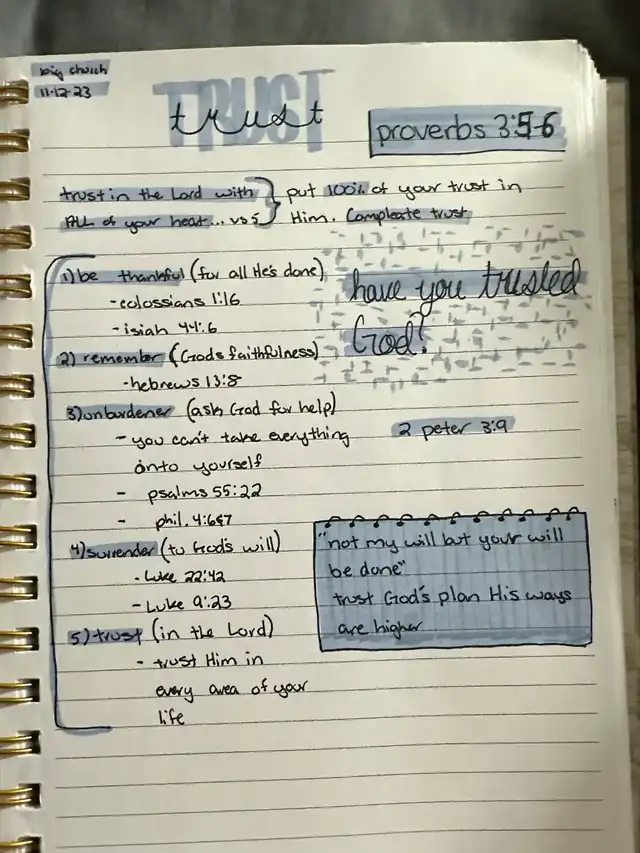 big church
11-12-23
TRUST
trust
proverbs 3:5-6
trust in the Lord with } put 100% of your trust in
ALL of your heart... vs 5 Him. Compleate trust
1) be thankful (for all He's done)
- colossians 1:16
- isiah 44:6
have you trusted
God?
2) remember (Gods faithfulness)
- hebrews 13:8
3) unburdener (ask God for help)
- you can't take everything
onto yourself
2 peter 3:9
- psalms 55:22
- phil. 4:6&7
4) surrender (to God's will)
- Luke 22:42
- Luke 9:23
"not my will but your will
be done"
trust God's plan His ways
are higher
5) trust (in the Lord)
- trust Him in
every area of your
life